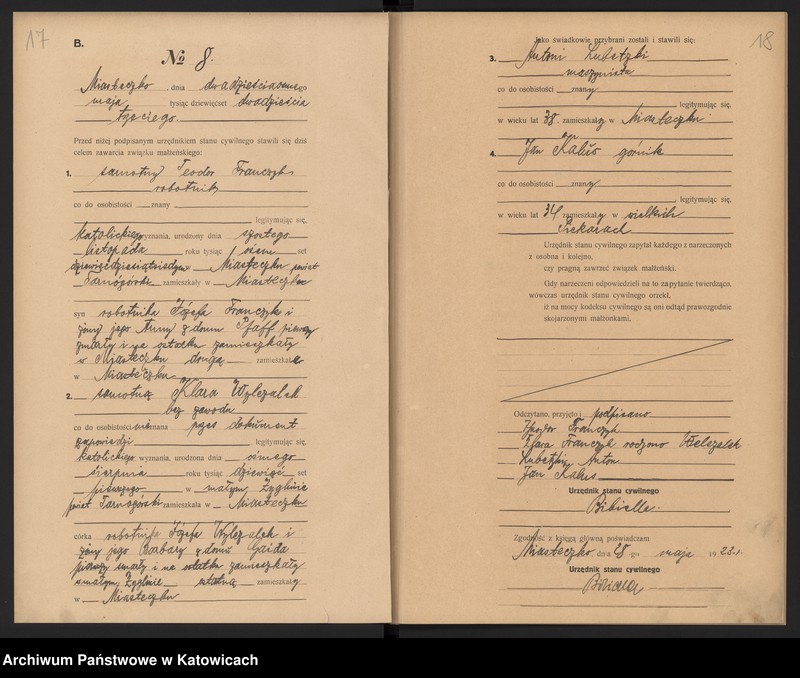 17
B.
№ 8.
Miasteczko dnia dwadzieściaosmego
maja tysiąc dziewięćset dwadzieścia
trzeciego
Przed niżej podpisanym urzędnikiem stanu cywilnego stawili się dziś
celem zawarcia związku małżeńskiego:
1. samotny Teodor Franczyk
robotnik
co do osobistości znany
legitymując się,
katolickiego wyznania, urodzony dnia szóstego
listopada roku tysiąc ośm set
dziewięćdziesiątsiedym w Miasteczku powiat
Tarnogórski zamieszkały w Miasteczku
syn robotnika Józefa Franczyk i
żony jego Anny z domu Pfaff pierwszy
zmarły i na ostatku zamieszkały
w Miasteczku druga zamieszkała
w Miasteczku
2. samotna Klara Wylezalek
bez zawodu
co do osobistości nieznana przez dokument
zapowiedzi legitymując się,
katolickiego wyznania, urodzona dnia ósmego
sierpnia roku tysiąc dziewięć set
pierwszego w małym Żyglinie
powiat Tarnogórski zamieszkała w Miasteczku
córka robotnika Józefa Wylezalek i
żony jego Barbary z domu Gaida
pierwszy zmarły i na ostatku zamieszkały
w małym Żyglinie zamieszkały
w Miasteczku
18
Jako świadkowie przybrani zostali i stawili się:
3. Antoni Lubetzki
maszynista
co do osobistości znany
legitymując się,
w wieku lat 38 zamieszkały w Miasteczku
4. Jan Kalus górnik
co do osobistości znany
legitymując się,
w wieku lat 34 zamieszkały w wielkich
Piekarach
Urzędnik stanu cywilnego zapytał każdego z narzeczonych
z osobna i kolejno,
czy pragną zawrzeć związek małżeński.
Gdy narzeczeni odpowiedzieli na to zapytanie twierdząco,
wówczas urzędnik stanu cywilnego orzekł,
iż na mocy kodeksu cywilnego są oni odtąd prawozgodnie
skojarzonymi małżonkami.
Odczytano, przyjęto i podpisano
Teodor Franczyk
Klara Franczyk rodzono Wylezalek
Lubetzki Anton
Jan Kalus
Urzędnik stanu cywilnego
Bibielle.
Zgodność z księgą główną poświadczam
Miasteczko dnia 28 go maja 1923 r.
Urzędnik stanu cywilnego
Archiwum Państwowe w Katowicach